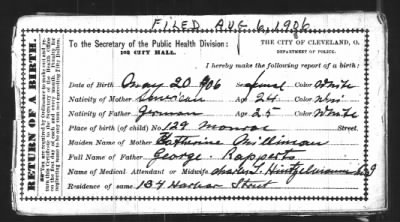 FILED AUG 6, 1906
To the Secretary of the Public Health Division:
102 CITY HALL.
THE CITY OF CLEVELAND, O.
DEPARTMENT OF POLICE.
I hereby make the following report of a birth:
RETURN OF A BIRTH.
Date of Birth May 20 '06 Sex Color White
Nativity of Mother American Age 24 Color
Nativity of Father German Age 25 Color White
Place of birth (of child) No 129 Monroe Street.
Maiden Name of Mother Catherine Milliman
Full Name of Father George Rapperts
Name of Medical Attendant or Midwife Charles L. Hintzelmann M.D
Residence of same 134 Harbor Street